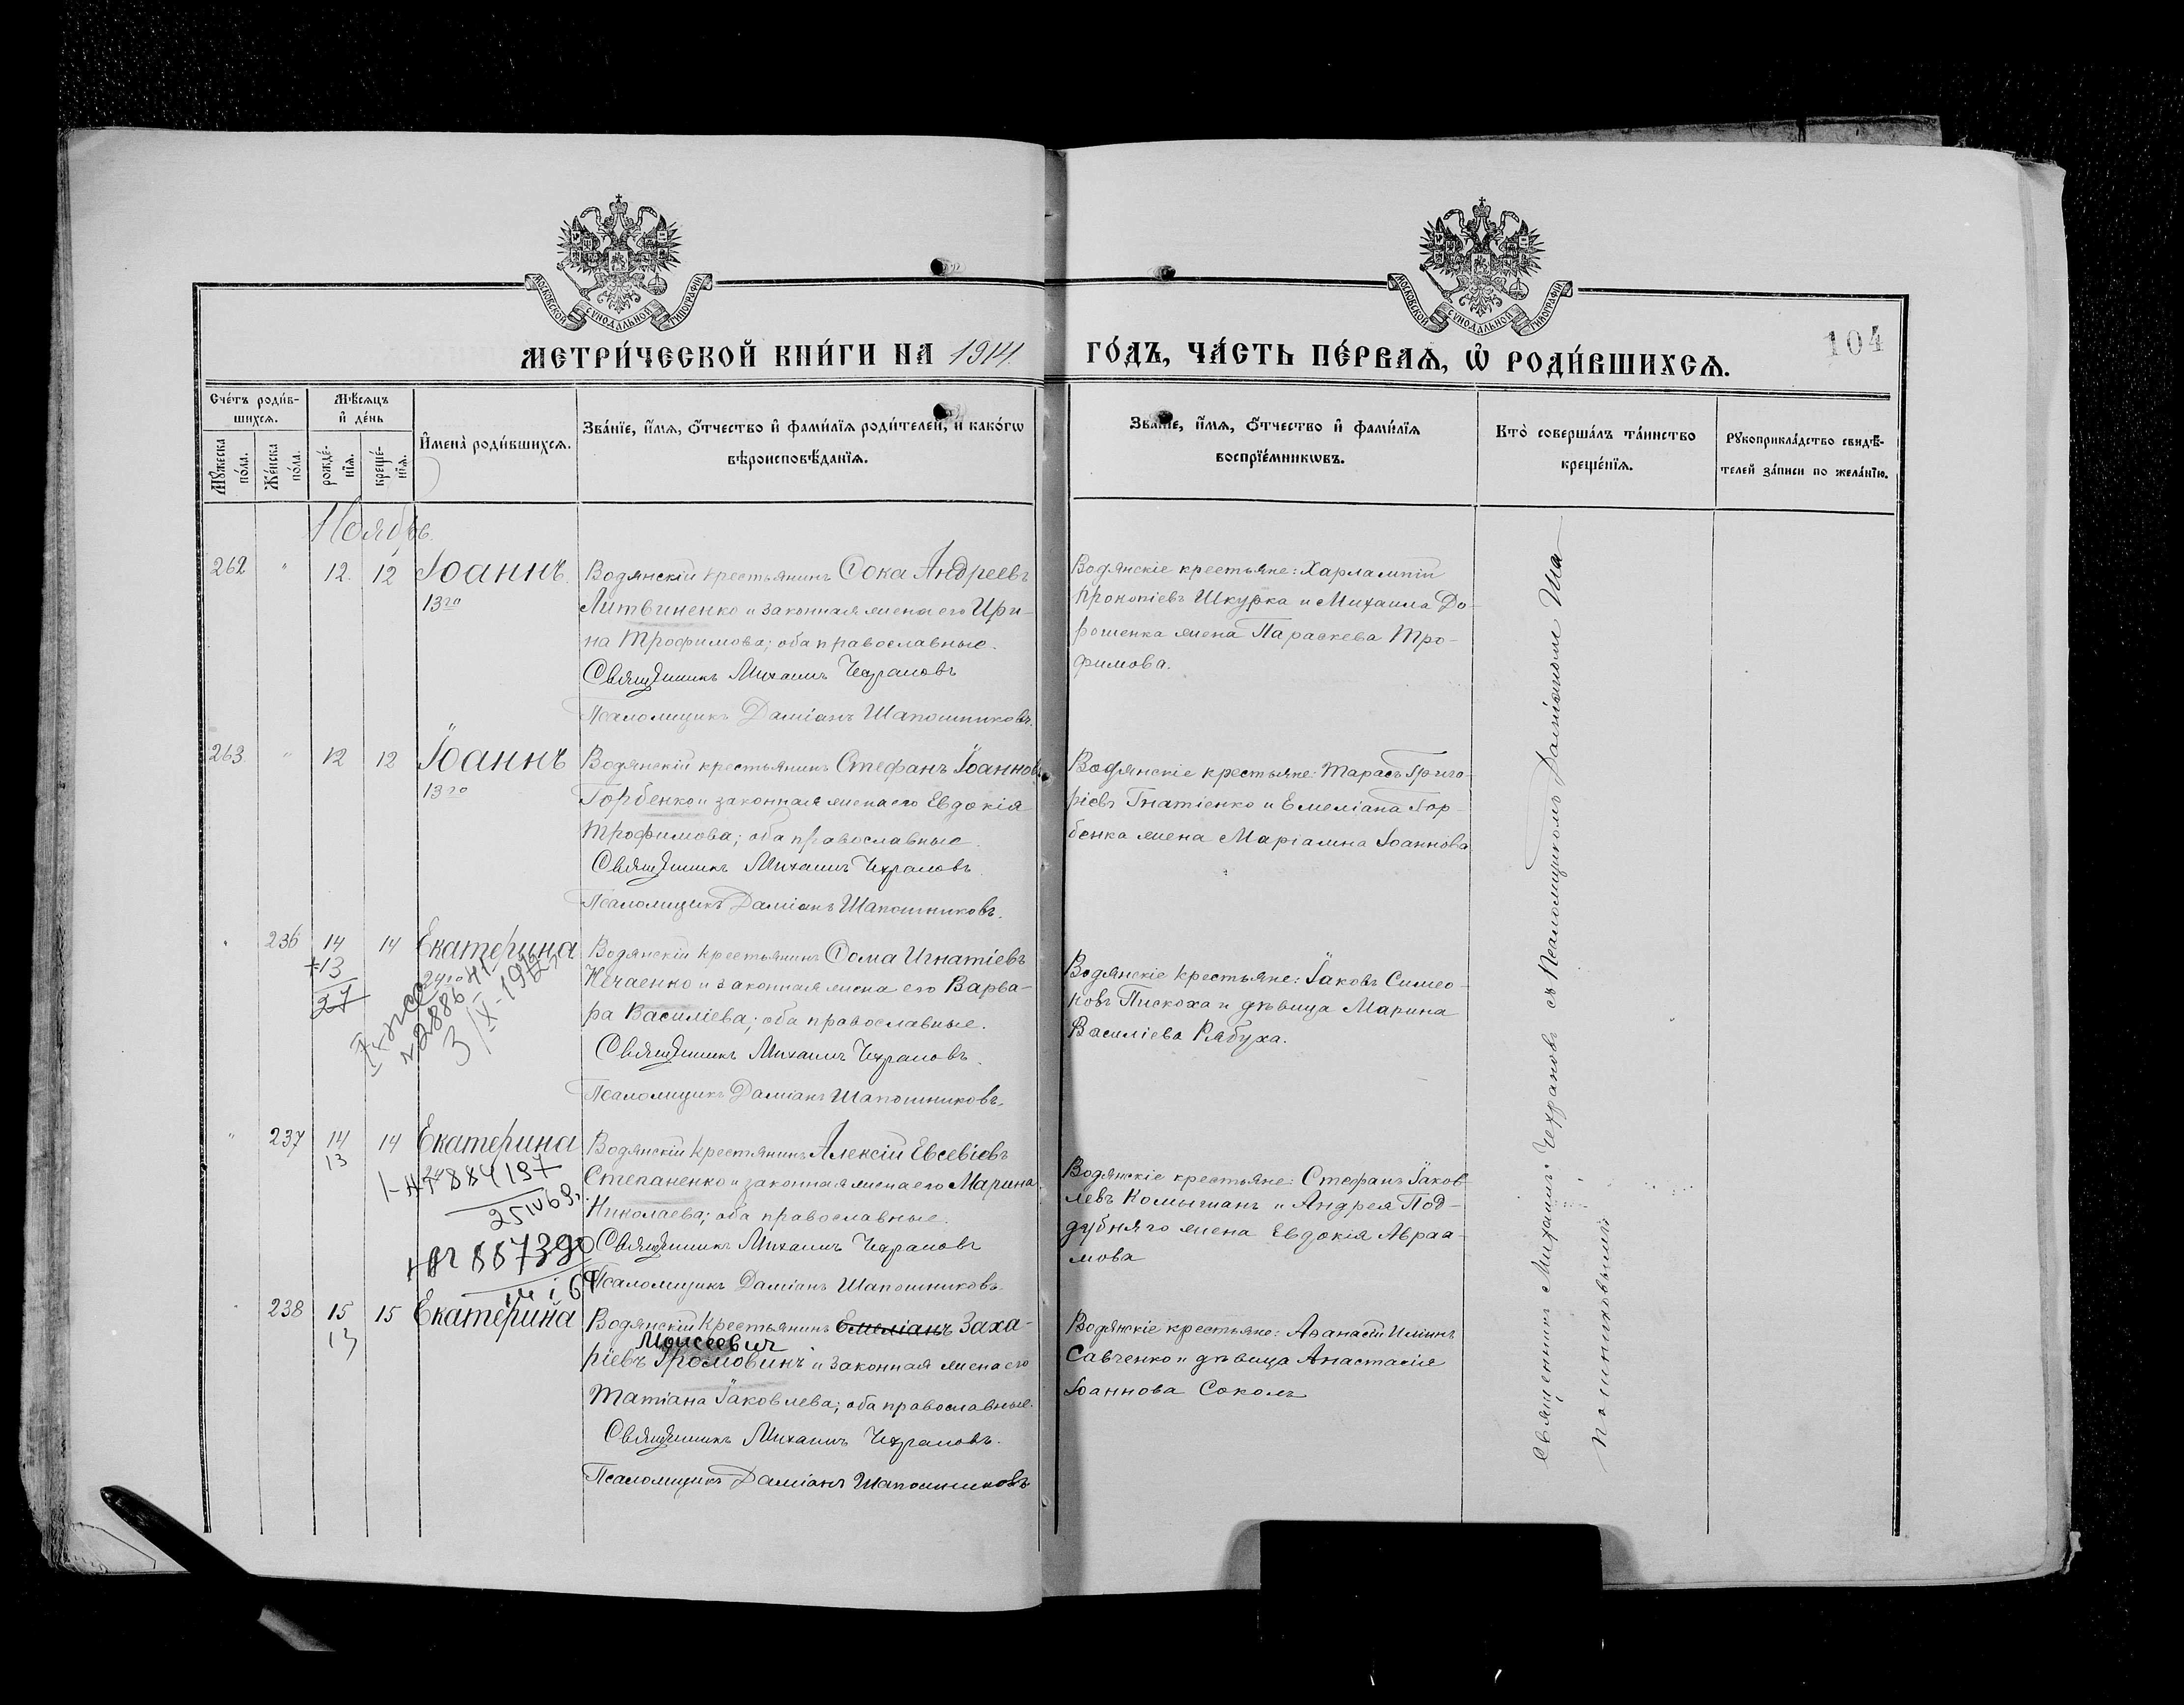 МОСКОВСКОЙ СѴНОДАЛЬНОЙ ТИПОГРАФІИ
МОСКОВСКОЙ СѴНОДАЛЬНОЙ ТИПОГРАФІИ
104
МЕТРИ́ЧЕСКОЙ КНИ́ГИ НА 1914. ГО́ДЪ, ЧА́СТЬ ПЕ́РВАѦ, Ѡ҆ РОДИ́ВШИХСѦ.
Сче́тъ роди́в-
шихсѧ.
Мꙋ́жеска по́ла.
Же́нска по́ла.
Мѣ́сѧцъ
и҆ де́нь
рожде́-
нїѧ.
креще́-
нїѧ.
И҆мена̀ роди́вшихсѧ.
Зва́нїе, и҆́мѧ, ѻ҆́тчество и҆ фами́лїѧ роди́телей, и҆ како́гѡ
вѣроисповѣ́данїѧ.
Зва́нїе, и҆́мѧ, ѻ҆́тчество и҆ фами́лїѧ
воспрїе́мникѡвъ.
Кто̀ соверша́лъ та́инство
креще́нїѧ.
Рꙋкоприкла́дство свидѣ́-
телей за́писи по жела́нїю.
Ноябрь.
262 " 12. 12 Іоаннъ.
13го
Водянскій крестьянинъ Ѳока Андреевъ
Литвиненко и законная жена его Ири-
на Трофимова; оба православные.
Священникъ Михаилъ Чехрановъ
Псаломщикъ Даміанъ Шапошниковъ.
Водянскіе крестьяне: Харлампій
Прокопіевъ Шкурка и Михаила До-
рошенка жена Параскева Тро-
фимова.
263 " 12 12 Іоаннъ
13го
Водянскій крестьянинъ Стефанъ Іоанновъ
Горбенко и законная жена его Евдокія
Трофимова; оба православные.
Священникъ Михаилъ Чехрановъ.
Псаломщикъ Даміанъ Шапошниковъ.
Водянскіе крестьяне: Тарасъ Григо-
ріевъ Гнатіенко и Емеліана Гор-
бенка жена Маріамна Іоаннова
" 236 14 14 Екатерина
+13
27
24го
3/IX-
Водянскій крестьянинъ Ѳома Игнатіевъ
Нечаенко и законная жена его Варва-
ра Василіева; оба православные.
Священникъ Михаилъ Чехрановъ.
Псаломщикъ Даміанъ Шапошниковъ.
Водянскіе крестьяне: Іаковъ Симео-
новъ Пискоха и дѣвица Марина
Василіева Рябуха.
" 237 14 14 Екатерина
13
25 IV 69г.
Водянскій крестьянинъ Алексій Евсевіевъ
Степаненко и законная жена его Марина
Николаева; оба православные.
Священникъ Михаилъ Чехрановъ
Псаломщикъ Даміанъ Шапошниковъ.
Водянскіе крестьяне: Стефанъ Іаков-
левъ Комышанъ и Андрея Под-
дубняго жена Евдокія Авраа-
мова
238 15 15 Екатерина
13
Водянскій крестьянинъ Емеліанъ Заха-
Моисеевич
ріевъ Громовинъ и законная жена его
Татіана Іаковлева; оба православные.
Священникъ Михаилъ Чехрановъ.
Псаломщикъ Даміанъ Шапошниковъ
Водянскіе крестьяне: Аѳанасій Иліинъ
Савченко и дѣвица Анастасія
Іоаннова Соколъ
Священникъ Михаилъ Чехрановъ съ Псаломщикомъ Даміаномъ Ша-
пошниковымъ